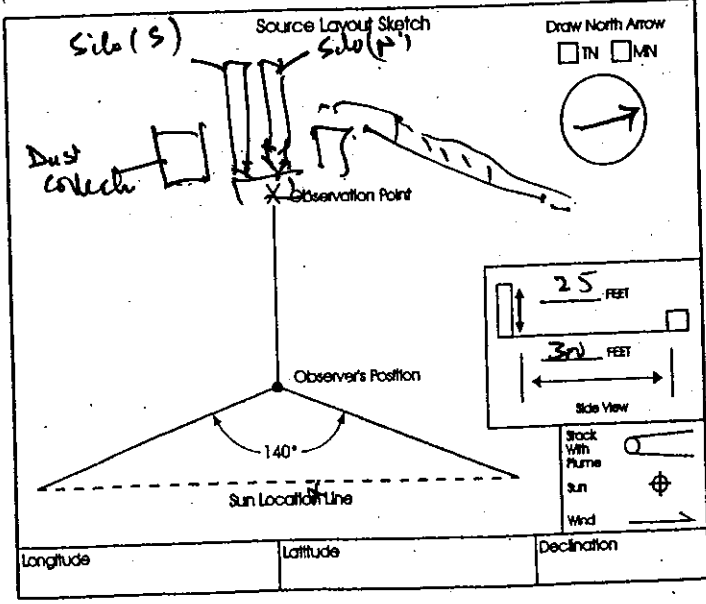 Source Layout Sketch
Draw North Arrow
TN MN
Silo (S)
Silo (N)
Dust
collech
Observation Point
25 FEET
FEET
Side View
Observer's Position
140°
Sun Location Line
Stack
With
Plume
Sun
Wind
Longitude
Latitude
Declination